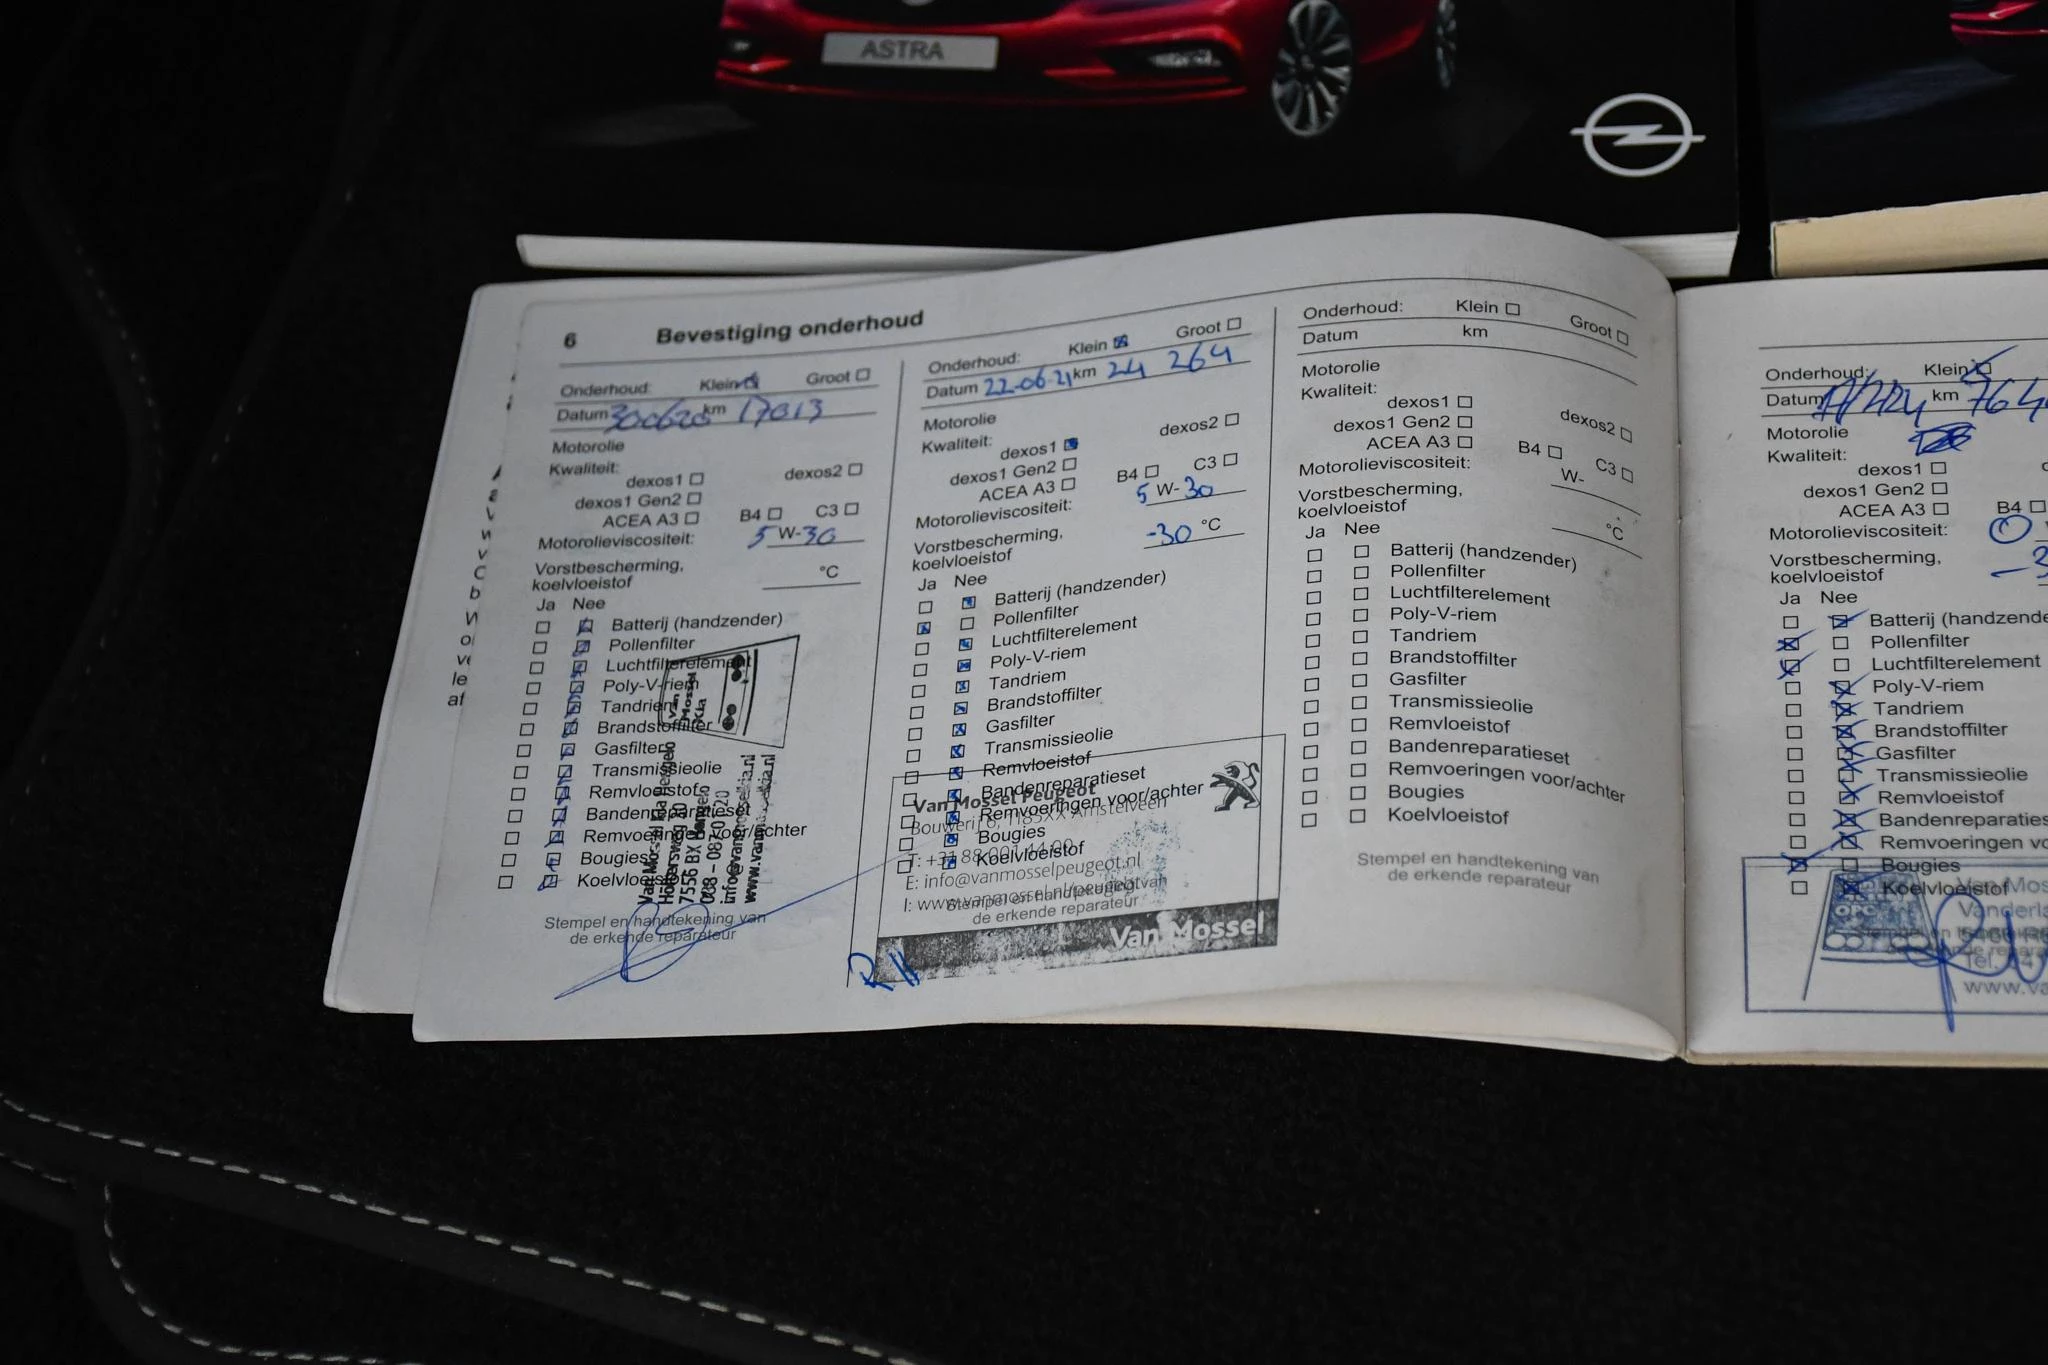 ASTRA
6 Bevestiging onderhoud
Onderhoud: Klein Groot
Datum 300620 km 17013
Motorolie
Kwaliteit:
dexos1 dexos2
dexos1 Gen2
ACEA A3 B4 C3
Motorolieviscositeit: 5 W-30
Vorstbescherming,
koelvloeistof °C
Ja Nee
Batterij (handzender)
Pollenfilter
Luchtfilterelement
Poly-V-riem
Tandriem
Brandstoffilter
Gasfilter
Transmissieolie
Remvloeistof
Bandenreparatieset
Remvoeringen voor/achter
Bougies
Koelvloeistof
Van
Mossel
Kia
Van Mossel Kia Hengelo
7556 BX Hengelo
info@vanmosselkia.nl
www.vanmosselkia.nl
Stempel en handtekening van
de erkende reparateur
Onderhoud: Klein Groot
Datum 22-06-21 km 24 264
Motorolie
Kwaliteit:
dexos1 dexos2
dexos1 Gen2
ACEA A3 B4 C3
Motorolieviscositeit: 5 W-30
Vorstbescherming,
koelvloeistof -30 °C
Ja Nee
Batterij (handzender)
Pollenfilter
Luchtfilterelement
Poly-V-riem
Tandriem
Brandstoffilter
Gasfilter
Transmissieolie
Remvloeistof
Bandenreparatieset
Remvoeringen voor/achter
Bougies
Koelvloeistof
Van Mossel Peugeot
Bouwerij 6, 1185XX Amstelveen
T: +31 88 001 44 00
E: info@vanmosselpeugeot.nl
I: www.vanmossel.nl/peugeot
Stempel en handtekening van
de erkende reparateur
Van Mossel
RH
Onderhoud: Klein Groot
Datum km
Motorolie
Kwaliteit:
dexos1 dexos2
dexos1 Gen2
ACEA A3 B4 C3
Motorolieviscositeit: W-
Vorstbescherming,
koelvloeistof °C
Ja Nee
Batterij (handzender)
Pollenfilter
Luchtfilterelement
Poly-V-riem
Tandriem
Brandstoffilter
Gasfilter
Transmissieolie
Remvloeistof
Bandenreparatieset
Remvoeringen voor/achter
Bougies
Koelvloeistof
Stempel en handtekening van
de erkende reparateur
Onderhoud: Klein
Datum km 764
Motorolie
Kwaliteit:
dexos1
dexos1 Gen2
ACEA A3 B4
Motorolieviscositeit: 0
Vorstbescherming,
koelvloeistof -3
Ja Nee
Batterij (handzende
Pollenfilter
Luchtfilterelement
Poly-V-riem
Tandriem
Brandstoffilter
Gasfilter
Transmissieolie
Remvloeistof
Bandenreparaties
Remvoeringen vo
Bougies
Koelvloeistof
Van Mos
Vanderla
Tel.
www.va